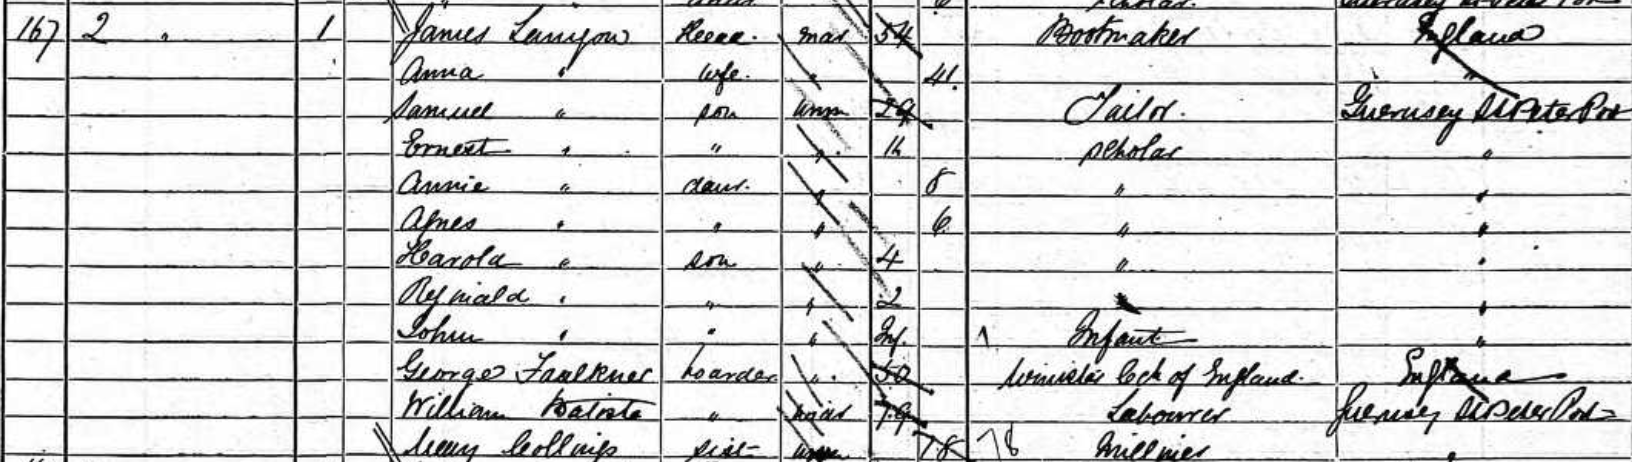 scholar.
167 2 " 1 James Head. mar 54 Bootmaker England
Anna " wife. " 41. "
Samuel " son unm 29 Tailor. Guernsey St Peter Port
Ernest " " " 11 scholar "
Annie " daur. " 8 " "
Agnes " " " 6 " "
Harold " son " 4 " "
Reginald " " " 2 "
John " " " Inf. 1 Infant "
George Faulkner boarder " 50 Minister Coh of England. England
William Batiste " mar 79 Labourer Guernsey St Peter Port
Mary Collings sist unm 78 78 Milliner "